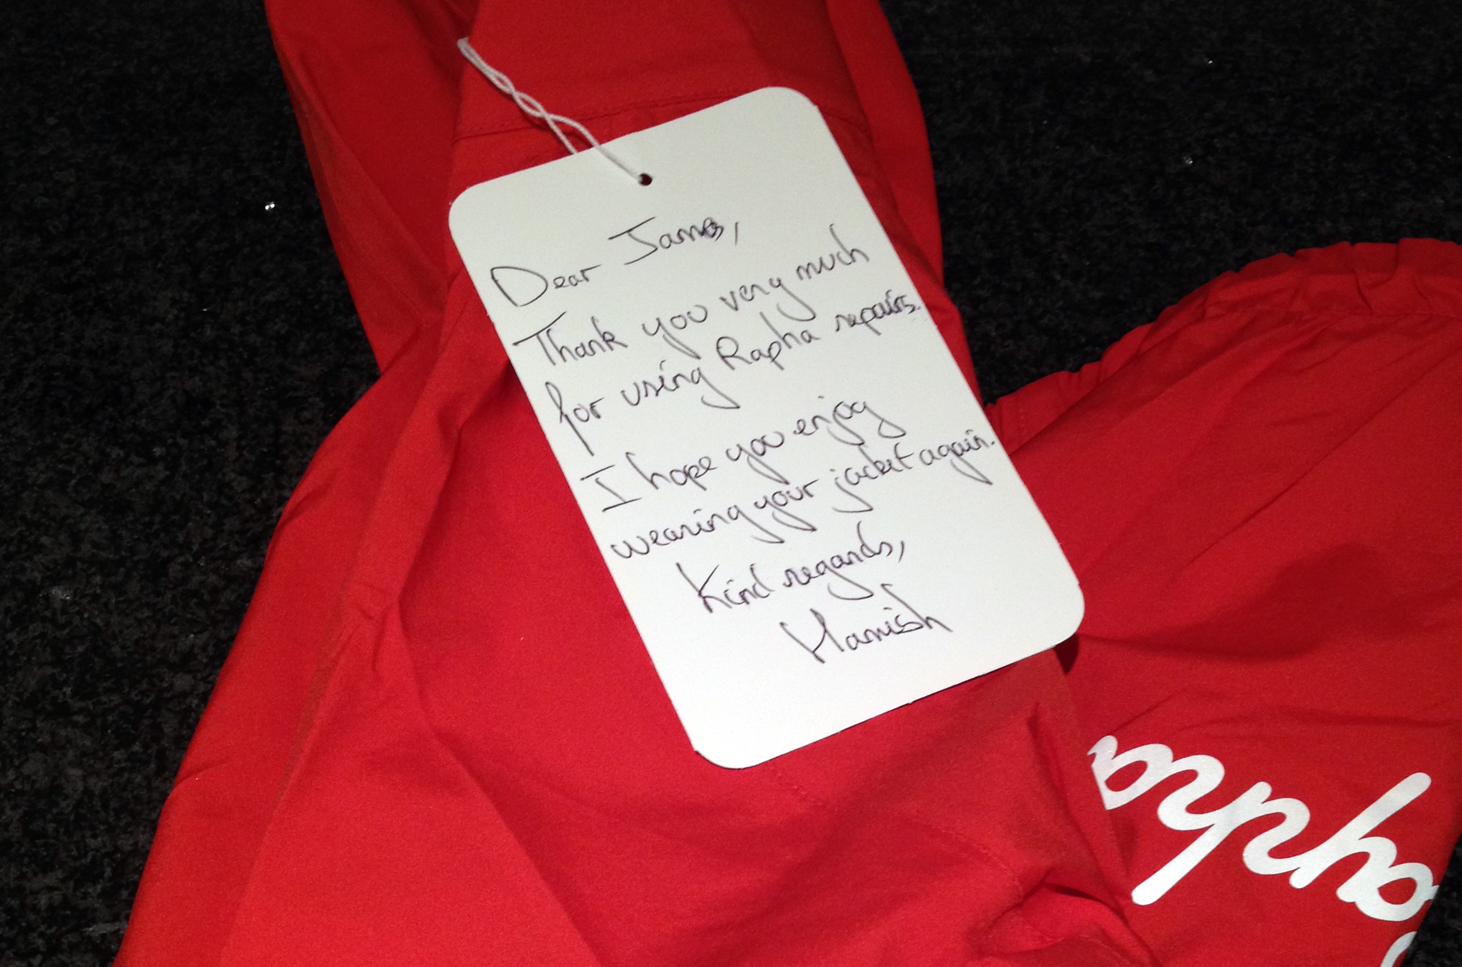 Dear James,
Thank you very much
for using Rapha repairs.
I hope you enjoy
wearing your jacket again.
Kind regards,
Hamish
rapha